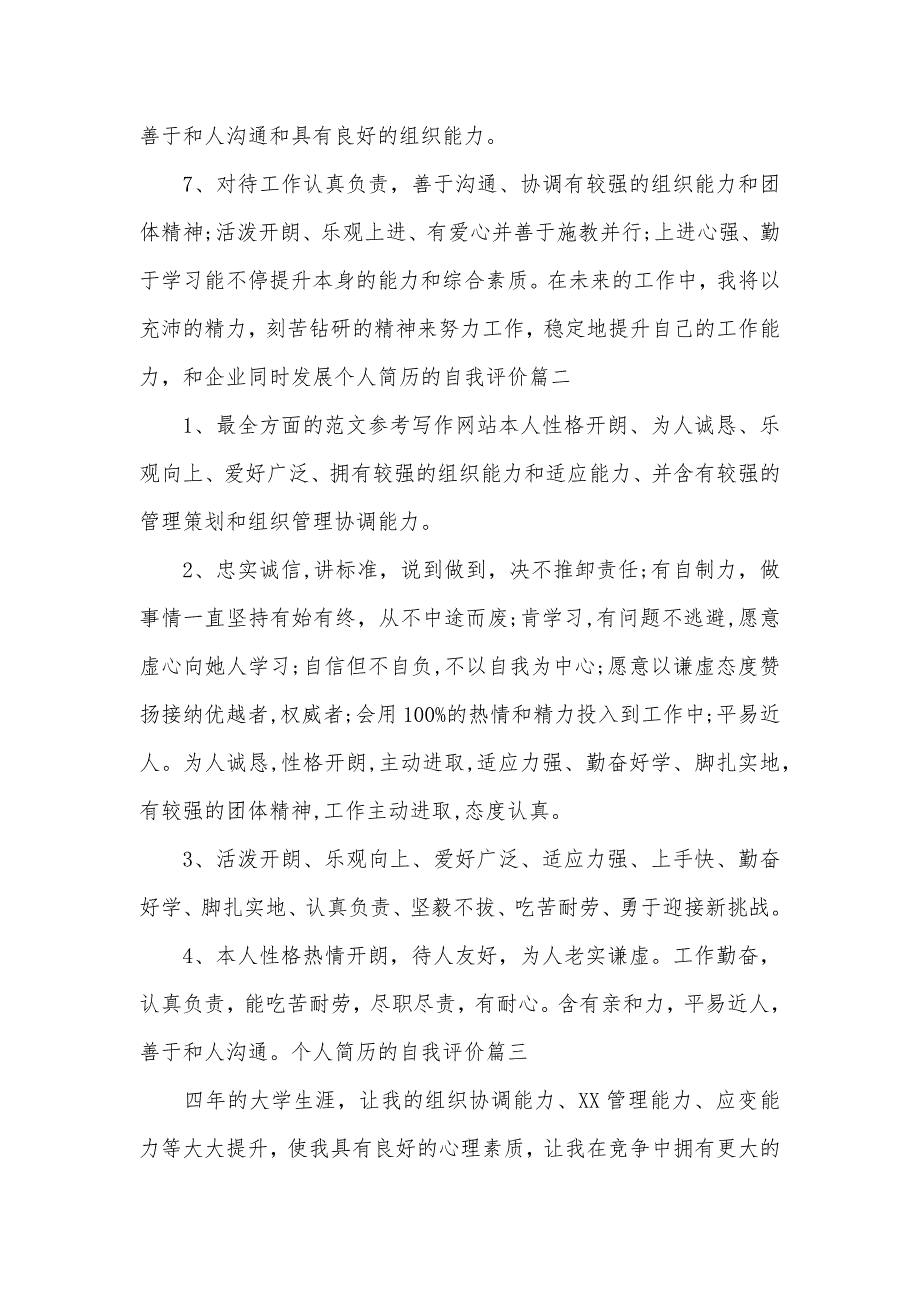 善于和人沟通和具有良好的组织能力。
7、对待工作认真负责，善于沟通、协调有较强的组织能力和团
体精神;活泼开朗、乐观上进、有爱心并善于施教并行;上进心强、勤
于学习能不停提升本身的能力和综合素质。在未来的工作中，我将以
充沛的精力，刻苦钻研的精神来努力工作，稳定地提升自己的工作能
力，和企业同时发展个人简历的自我评价篇二
1、最全方面的范文参考写作网站本人性格开朗、为人诚恳、乐
观向上、爱好广泛、拥有较强的组织能力和适应能力、并含有较强的
管理策划和组织管理协调能力。
2、忠实诚信,讲标准，说到做到，决不推卸责任;有自制力，做
事情一直坚持有始有终，从不中途而废;肯学习,有问题不逃避,愿意
虚心向她人学习;自信但不自负,不以自我为中心;愿意以谦虚态度赞
扬接纳优越者,权威者;会用100%的热情和精力投入到工作中;平易近
人。为人诚恳,性格开朗,主动进取,适应力强、勤奋好学、脚扎实地，
有较强的团体精神,工作主动进取,态度认真。
3、活泼开朗、乐观向上、爱好广泛、适应力强、上手快、勤奋
好学、脚扎实地、认真负责、坚毅不拔、吃苦耐劳、勇于迎接新挑战。
4、本人性格热情开朗，待人友好，为人老实谦虚。工作勤奋，
认真负责，能吃苦耐劳，尽职尽责，有耐心。含有亲和力，平易近人，
善于和人沟通。个人简历的自我评价篇三
四年的大学生涯，让我的组织协调能力、XX管理能力、应变能
力等大大提升，使我具有良好的心理素质，让我在竞争中拥有更大的